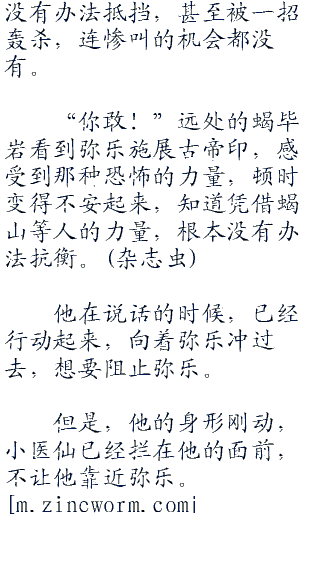 没有办法抵挡，甚至被一招
轰杀，连惨叫的机会都没
有。
“你敢！”远处的蝎毕
岩看到弥乐施展古帝印，感
受到那种恐怖的力量，顿时
变得不安起来，知道凭借蝎
山等人的力量，根本没有办
法抗衡。(杂志虫)
他在说话的时候，已经
行动起来，向着弥乐冲过
去，想要阻止弥乐。
但是，他的身形刚动，
小医仙已经拦在他的面前，
不让他靠近弥乐。
[m.zincworm.com¦